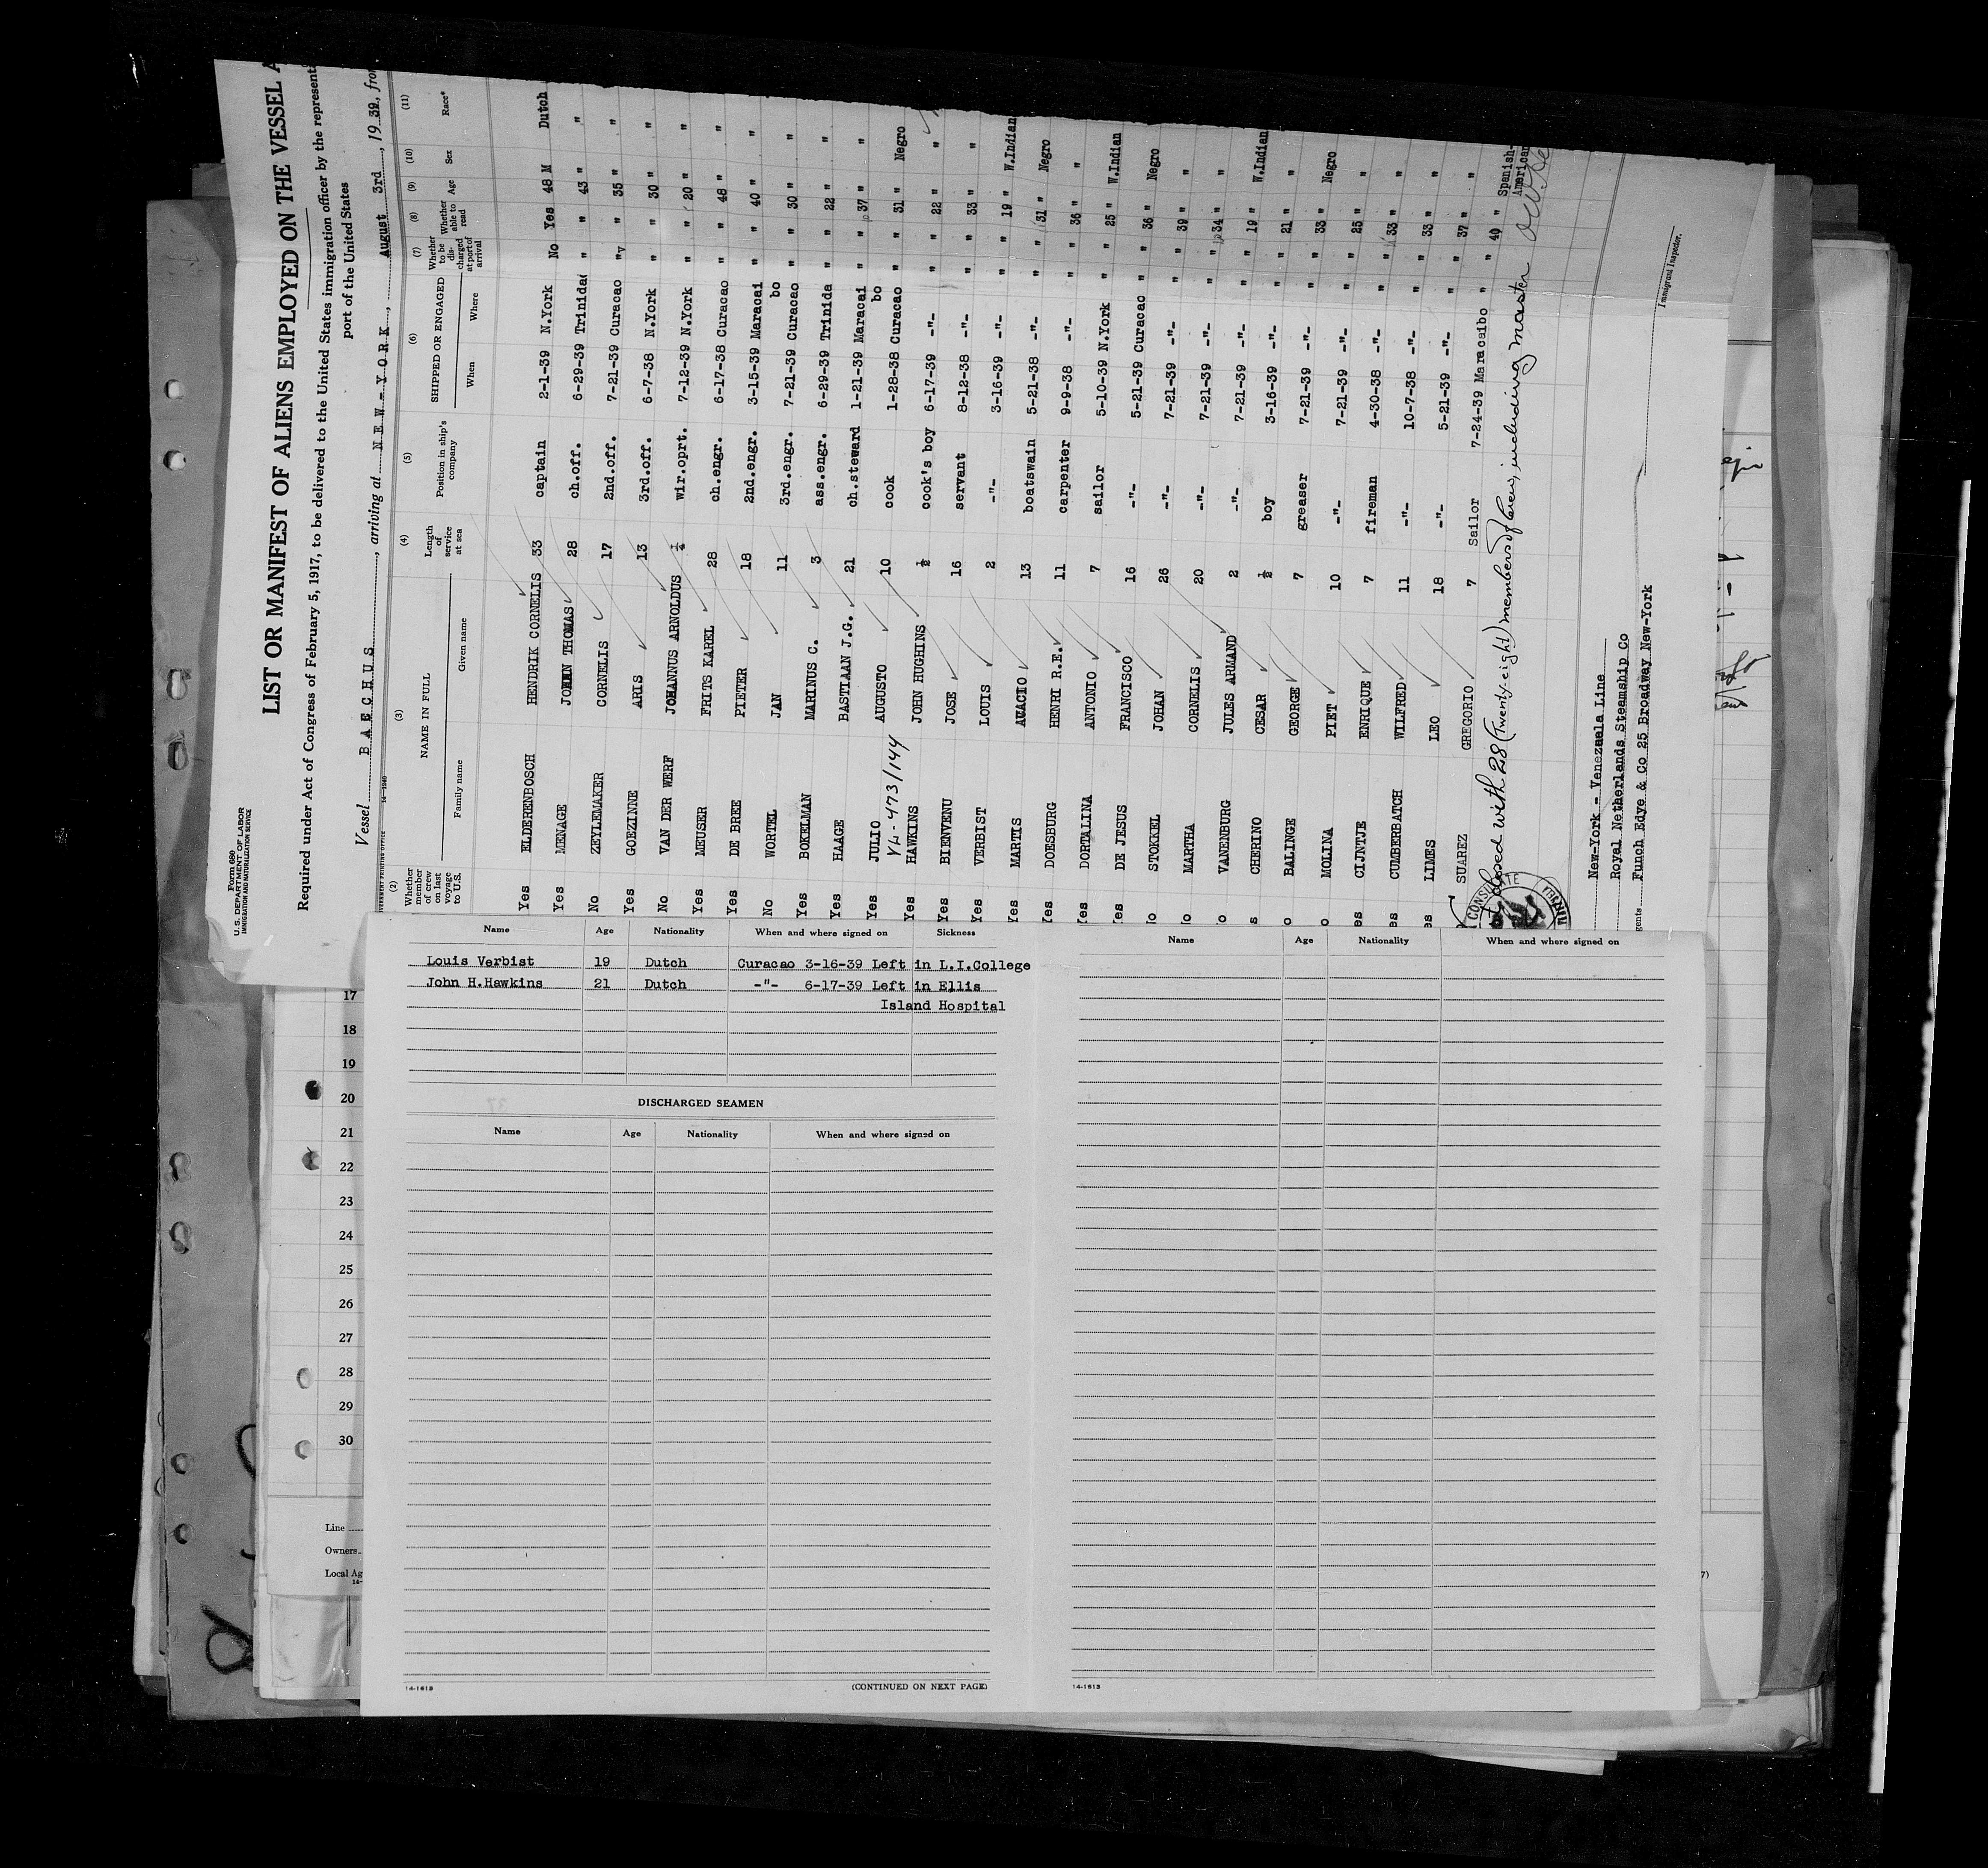 Form 680
U. S. DEPARTMENT OF LABOR
IMMIGRATION AND NATURALIZATION SERVICE
LIST OR MANIFEST OF ALIENS EMPLOYED ON THE VESSEL A
Required under Act of Congress of February 5, 1917, to be delivered to the United States immigration officer by the represent
port of the United States
Vessel BACCHUS, arriving at NEW-YORK, August 3rd, 1939, from
GOVERNMENT PRINTING OFFICE 14—1940
(2) (3) (4) (5) (6) (7) (8) (9) (10) (11)
Whether member of crew on last voyage to U.S. NAME IN FULL Length of service at sea Position in ship's company SHIPPED OR ENGAGED Whether to be discharged at port of arrival Whether able to read Age Sex Race*
Family name Given name When Where
Yes ELDERENBOSCH HENDRIK CORNELIS 33 captain 2-1-39 N.York No Yes 48 M Dutch
Yes MENAGE JOHAN THOMAS 28 ch.off. 6-29-39 Trinidad " " 43 " "
No ZEYLEMAKER CORNELIS 17 2nd.off. 7-21-39 Curacao " " 35 " "
Yes GOEZINNE ARIS 13 3rd.off. 6-7-38 N.York " " 30 " "
No VAN DER WERF JOHANNUS ARNOLDUS ½ wir.oprt. 7-12-39 N.York " " 20 " "
Yes MEUSER FRITS KAREL 28 ch.engr. 6-17-38 Curacao " " 48 " "
Yes DE BREE PIETER 18 2nd.engr. 3-15-39 Maracaibo " " 40 " "
No WORTEL JAN 11 3rd.engr. 7-21-39 Curacao " " 30 " "
Yes BOKELMAN MARINUS C. 3 ass.engr. 6-29-39 Trinida " " 22 " "
Yes HAAGE BASTIAAN J.G. 21 ch.steward 1-21-39 Maracaibo " " 37 " "
Yes JULIO AUGUSTO 10 cook 1-28-38 Curacao " " 31 " Negro
473/144
Yes HAWKINS JOHN HUGHINS ½ cook's boy 6-17-39 -"- " " 22 " "
Yes BIENVENU JOSE 16 servant 8-12-38 -"- " " 33 " "
Yes VERBIST LOUIS 2 -"- 3-16-39 -"- " " 19 " W.Indian
Yes MARTIS 13 boatswain 5-21-38 -"- " " 31 " Negro
Yes DOESBURG HENRI R.E. 11 carpenter 9-9-38 -"- " " 36 " "
Yes DORTALINA ANTONIO 7 sailor 5-10-39 N.York " " 25 " W.Indian
Yes DE JESUS FRANCISCO 16 -"- 5-21-39 Curacao " " 36 " Negro
No STOKKEL JOHAN 26 -"- 7-21-39 -"- " " 39 " "
No MARTHA CORNELIS 20 -"- 7-21-39 -"- " " 34 " "
o VANENBURG JULES ARMAND 2 -"- 7-21-39 -"- " " 19 " W.Indian
s CHERINO CESAR ½ boy 3-16-39 -"- " " 21 " "
o BALINGE GEORGE 7 greaser 7-21-39 -"- " " 33 " Negro
o MOLINA PIET 10 -"- 7-21-39 -"- " " 25 " "
es CIJNTJE ENRIQUE 7 fireman 4-30-38 -"- " " 33 " "
es CUMBERBATCH WILFRED 11 -"- 10-7-38 -"- " " 33 " "
es LIMES LEO 18 -"- 5-21-39 -"- " " 37 " "
SUAREZ GREGORIO 7 Sailor 7-24-39 Maracaibo " " 40 " Spanish-American
closed with 28 (Twenty-eight) members of crew, including master
CONSULATE
New-York - Venezuela Line
Royal Netherlands Steamship Co
gents Funch Edye & Co 25 Broadway New-York
Immigrant Inspector.
Name Age Nationality When and where signed on Sickness
Louis Verbist 19 Dutch Curacao 3-16-39 Left in L.I.College
John H.Hawkins 21 Dutch -"- 6-17-39 Left in Ellis
Island Hospital
DISCHARGED SEAMEN
Name Age Nationality When and where signed on
14-1613
(CONTINUED ON NEXT PAGE)
Name Age Nationality When and where signed on
14-1613
17
18
19
20
21
22
23
24
25
26
27
28
29
30
Line
Owners
Local Ag
14-
7)